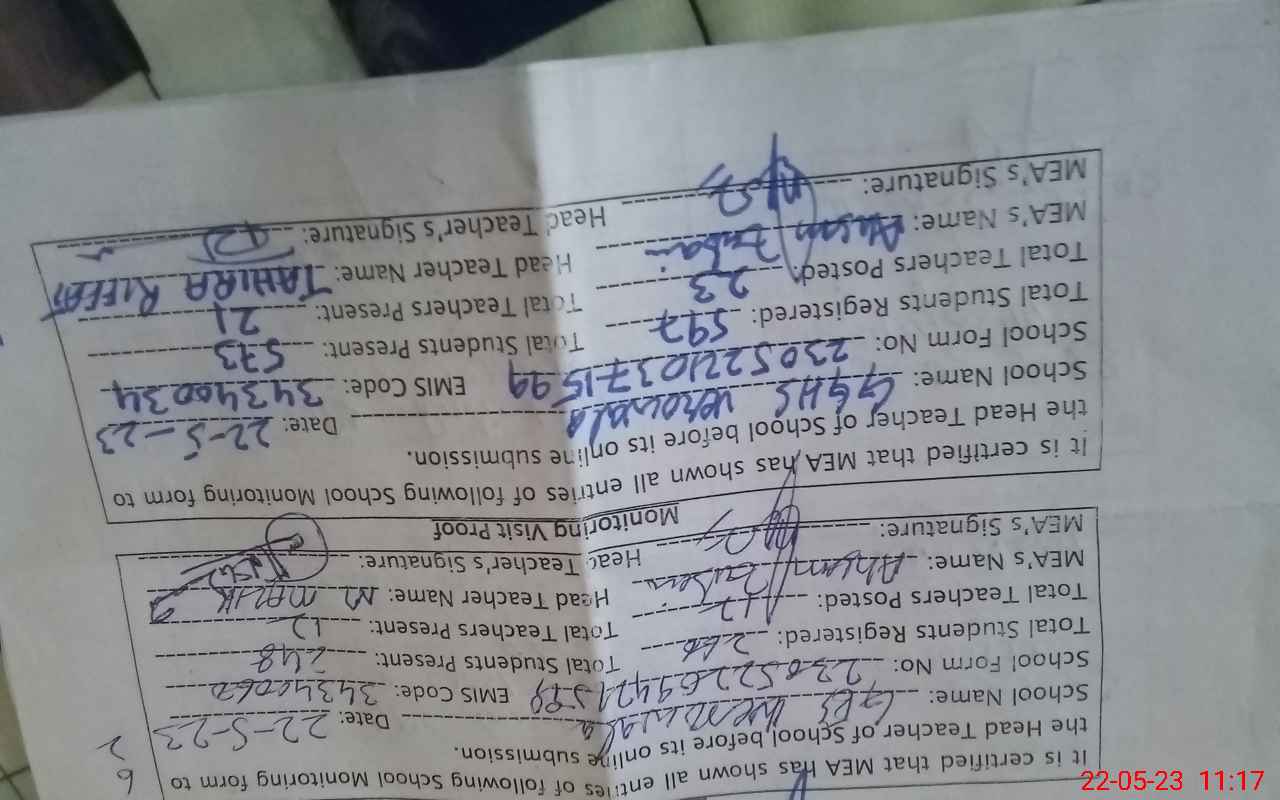 It is certified that MEA has shown all entries of following School Monitoring form to
the Head Teacher of School before its online submission.
School Name: GES Date: 22-5-23
School Form No: EMIS Code: 34340060
Total Students Registered: 266 Total Students Present: 248
Total Teachers Posted: 12 Total Teachers Present: 12
MEA's Name: Head Teacher Name: M MALIK
MEA's Signature: Head Teacher's Signature:
Monitoring Visit Proof
It is certified that MEA has shown all entries of following School Monitoring form to
the Head Teacher of School before its online submission.
School Name: GGHS verowala Date: 22-5-23
School Form No: 23052210371599 EMIS Code: 34340034
Total Students Registered: 597 Total Students Present: 573
Total Teachers Posted: 23 Total Teachers Present: 21
MEA's Name: Head Teacher Name: TAHIRA RIFFAT
MEA's Signature: Head Teacher's Signature:
22-05-23 11:17